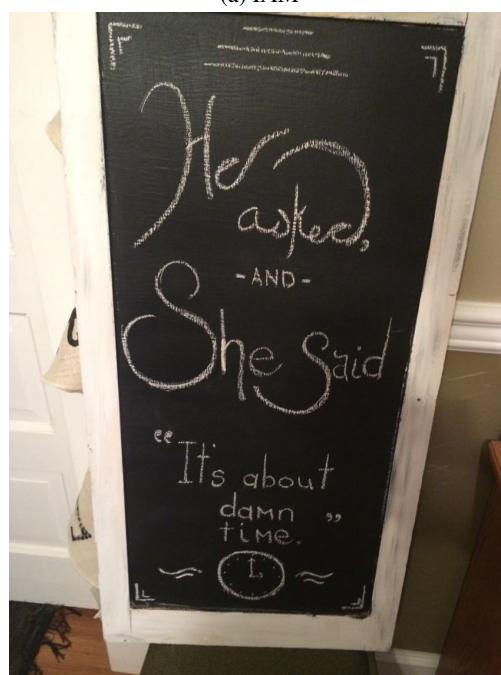 (a) IAM
He
asked,
- AND -
She Said
“It's about
damn
time.”